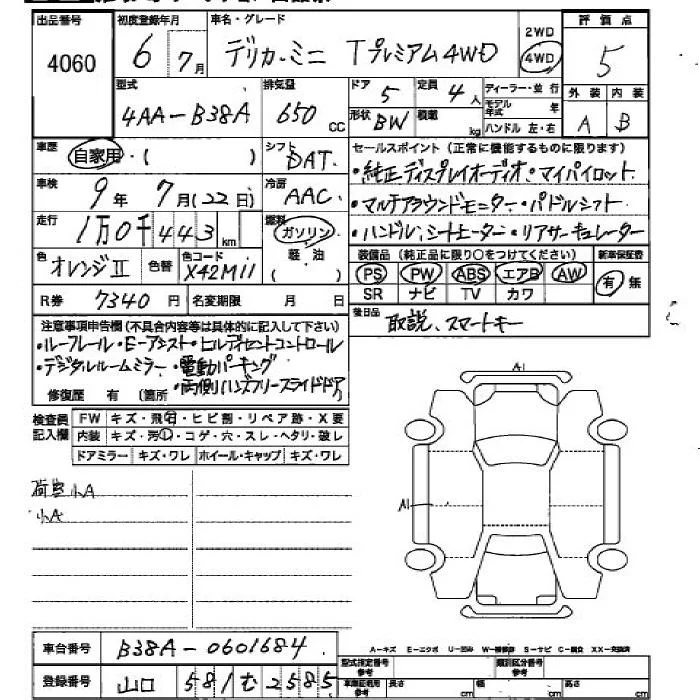 出品番号 4060
初度登録年月 6 7月
車名・グレード デリカミニ Tプレミアム4WD
2WD 4WD
評価点 5
型式 4AA-B38A
排気量 650 cc
ドア 5 定員 4人
形状 BW 積載 kg
ディーラー・並行
モデル年式 年
ハンドル 左・右
外装 内装
A B
車歴 自家用・( )
シフト DAT
車検 9年 7月(22日)
冷房 AAC
走行 1万0千443km
燃料 ガソリン 軽油 ( )
色 オレンジII 色替 色コード X42M11
R券 7340円 名変期限 月 日
セールスポイント(正常に機能するものに限ります)
・純正ディスプレイオーディオ・マイパイロット
・マルチアラウンドモニター・パドルシフト
・ハンドル、シートヒーター・リアサーキュレーター
装備品(純正品に限り○をつけてください) 新車保証書
PS PW ABS エアB AW 有 無
SR ナビ TV カワ
後日品 取説、スマートキー
注意事項申告欄(不具合内容等は具体的に記入して下さい)
・ルーフレール・E-アシスト・ヒルディセントコントロール
・デジタルルームミラー・電動パーキング
・両側ハンズフリースライドドア
修復歴 有 (箇所
検査員記入欄
FW キズ・飛石・ヒビ割・リペア跡・X要
内装 キズ・汚れ・コゲ・穴・スレ・ヘタリ・破レ
ドアミラー キズ・ワレ ホイール・キャップ キズ・ワレ
荷室小A
小A
A1
A1
車台番号 B38A-0601684
登録番号 山口 581む2585
A-キズ E-エクボ U-凹み W-補修跡 S-サビ C-腐食 XX-交換済
型式指定番号 参考
類別区分番号 参考
車庫証明用 参考 長さ cm 幅 cm 高さ cm